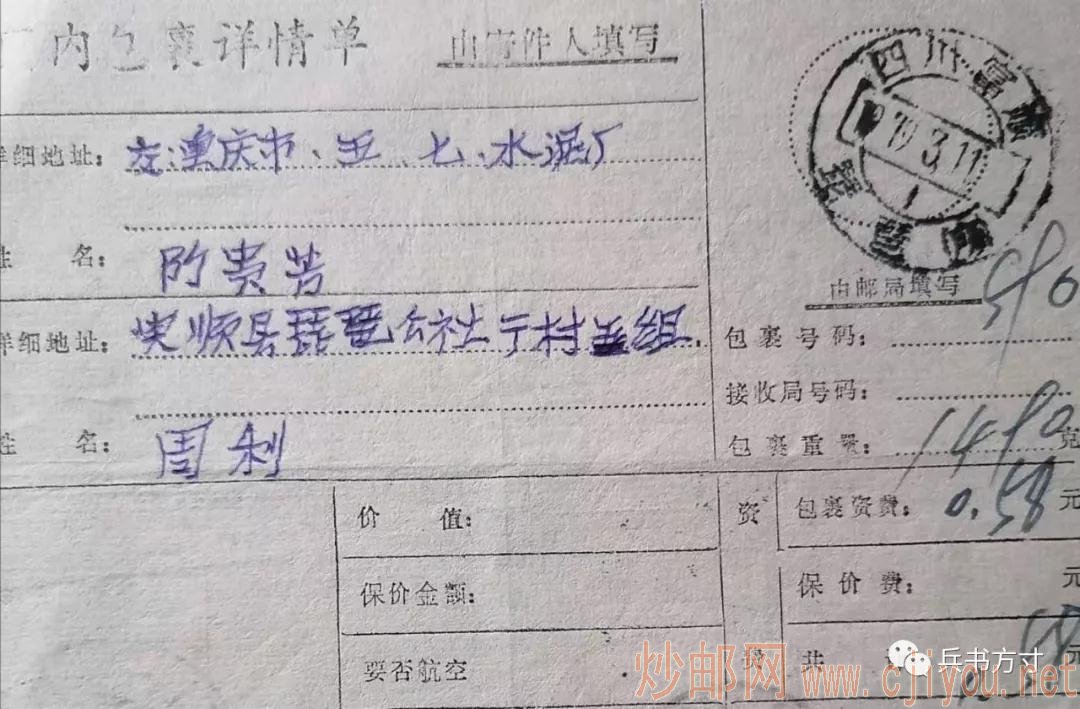 内包裹详情单 由寄件人填写
四川富顺
79.3.11
琵琶
详细地址: 交.重庆市、五 七、水泥厂
姓 名: 贵芳
由邮局填写
详细地址: 顺县琵琶公社于村五组.
包裹号码:
接收局号码:
姓 名: 周利
包裹重量: 1490 克
价 值:
资 包裹资费: 0.58 元
保价金额:
保价费: 元
要否航空
费 共 元
兵书方寸
炒邮网 www.cjiyou.net